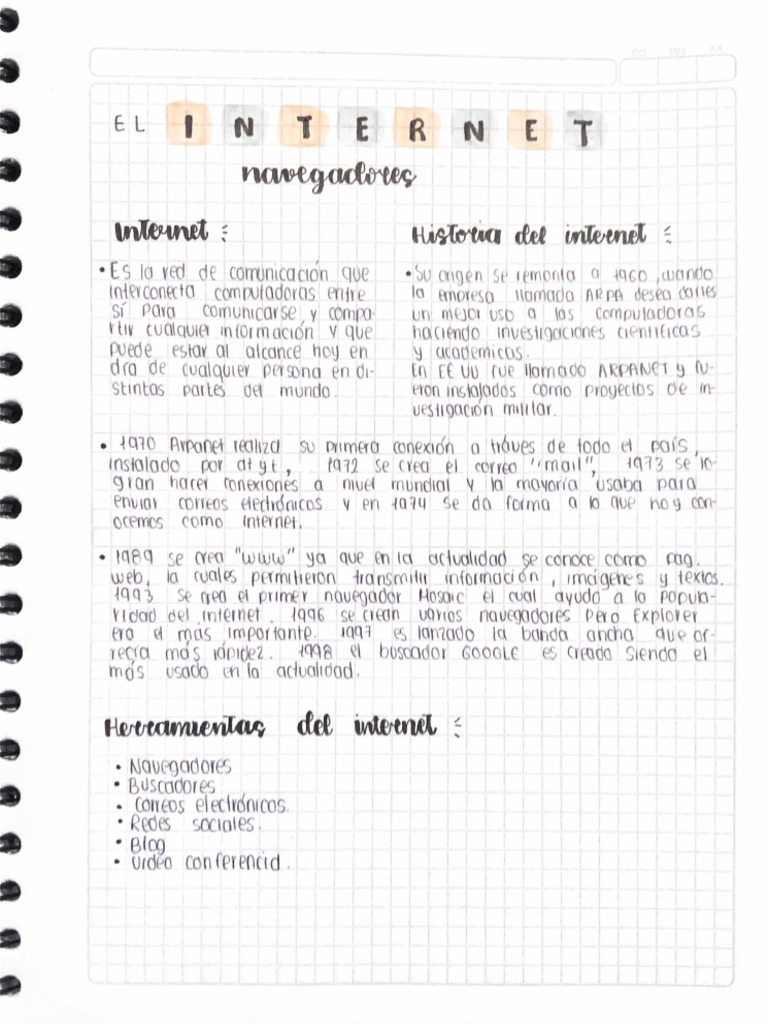 EL INTERNET
navegadores
Internet :
• Es la red de comunicación que
interconecta computadoras entre
sí para comunicarse y compa-
rtir cualquier información y que
puede estar al alcance hoy en
dra de cualquier persona en di-
stintas partes del mundo.
Historia del internet :
• Su origen se remonta a 1960, cuando
la empresa llamada ARPA desea darles
un mejor uso a las computadoras
haciendo investigaciones científicas
y academicas.
En EE UU fue llamado ARPANET y fu-
eron instalados como proyectos de in-
vestigación militar.
• 1970 Arpanet realiza su primera conexión a tráves de todo el país,
instalado por at y t, 1972 se crea el correo "mail", 1973 se lo-
gran hacer conexiones a nivel mundial y la mayoría usaba para
enviar correos electrónicos y en 1974 se da forma a lo que hoy con-
ocemos como Internet.
• 1989 se crea "www" ya que en la actualidad se conoce como pag.
web, la cuales permitieron transmitir información, imágenes y textos.
1993 se crea el primer navegador Mosaic el cual ayudo a la popula-
ridad del internet. 1996 se crean varios navegadores pero Explorer
era el mas importante. 1997 es lanzado la banda ancha que of-
recía más rápidez. 1998 el buscador GOOGLE es creado siendo el
más usado en la actualidad.
Herramientas del internet :
• Navegadores
• Buscadores
• Correos electrónicos.
• Redes sociales.
• Blog
• Video conferencia.